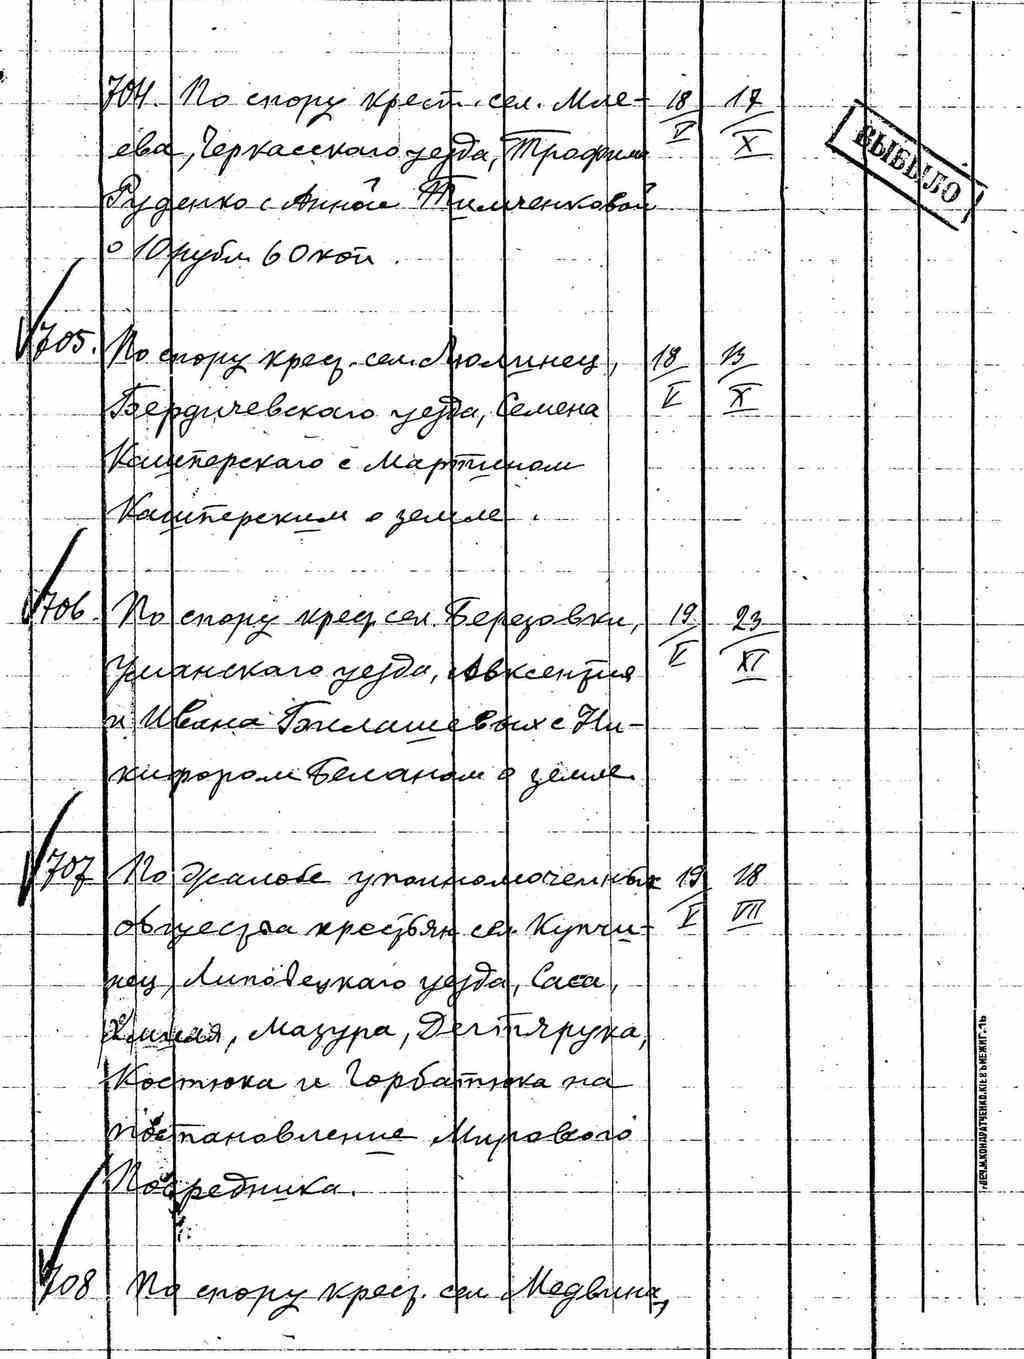 704. По спору крест. сел. Мле- 18/V 17/X
ева, Черкасскаго уезда, Трофима
Руденко с Анной Тимченковой
о 10 рубл. 60 коп.
ВЫБЫЛО
705. По спору крест. сел. Люлинец, 18/V 13/X
Бердичевскаго уезда, Семена
Кашперскаго с Мартином
Кашперским о земле.
706. По спору крест. сел. Березовки, 19/V 23/XI
Уманскаго уезда, Авксентия
и Ивана Билашевых с Ни-
кифором Беланом о земле
707 По жалобе уполномоченных 19/V 18/VII
общества крестьян сел. Купчи-
нец, Липовецкаго уезда, Саса,
Хмиля, Мазура, Дегтярука,
Костюка и Горбатюка на
постановление Мирового
Посредника.
708 По спору крест. сел. Медвина,
ПЕЧ.М.КОНДРАТЧЕНКО.КІЕВЪ МЕЖИГ.